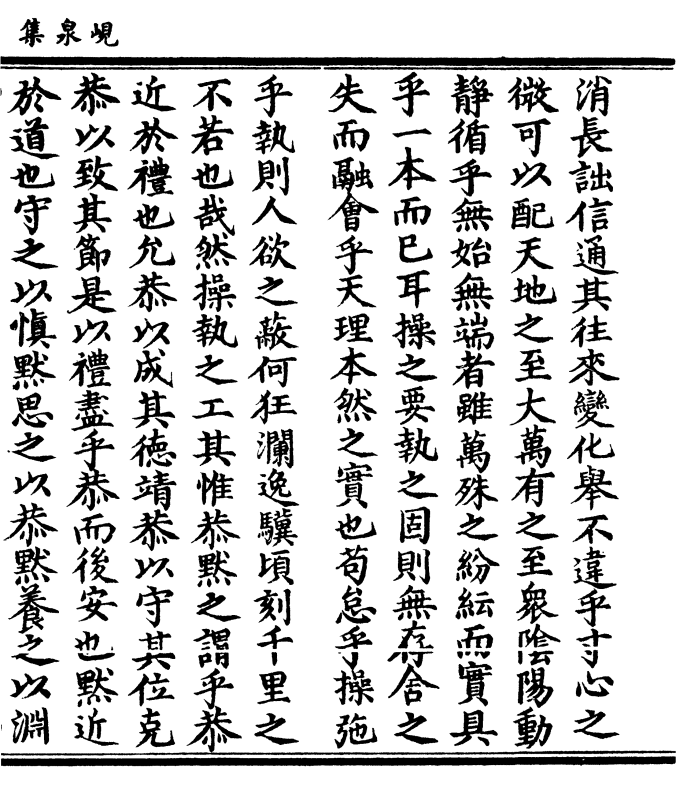 峴泉集
消長詘信通其往來變化舉不違乎寸心之
微可以配天地之至大萬有之至衆陰陽動
靜循乎無始無端者雖萬殊之紛紜而實具
乎一本而已耳操之要執之固則無存舍之
失而融會乎天理本然之實也苟怠乎操弛
乎執則人欲之蔽何狂瀾逸驥頃刻千里之
不若也哉然操執之工其惟恭默之謂乎恭
近於禮也允恭以成其德靖恭以守其位克
恭以致其節是以禮盡乎恭而後安也默近
於道也守之以慎默思之以恭默養之以淵